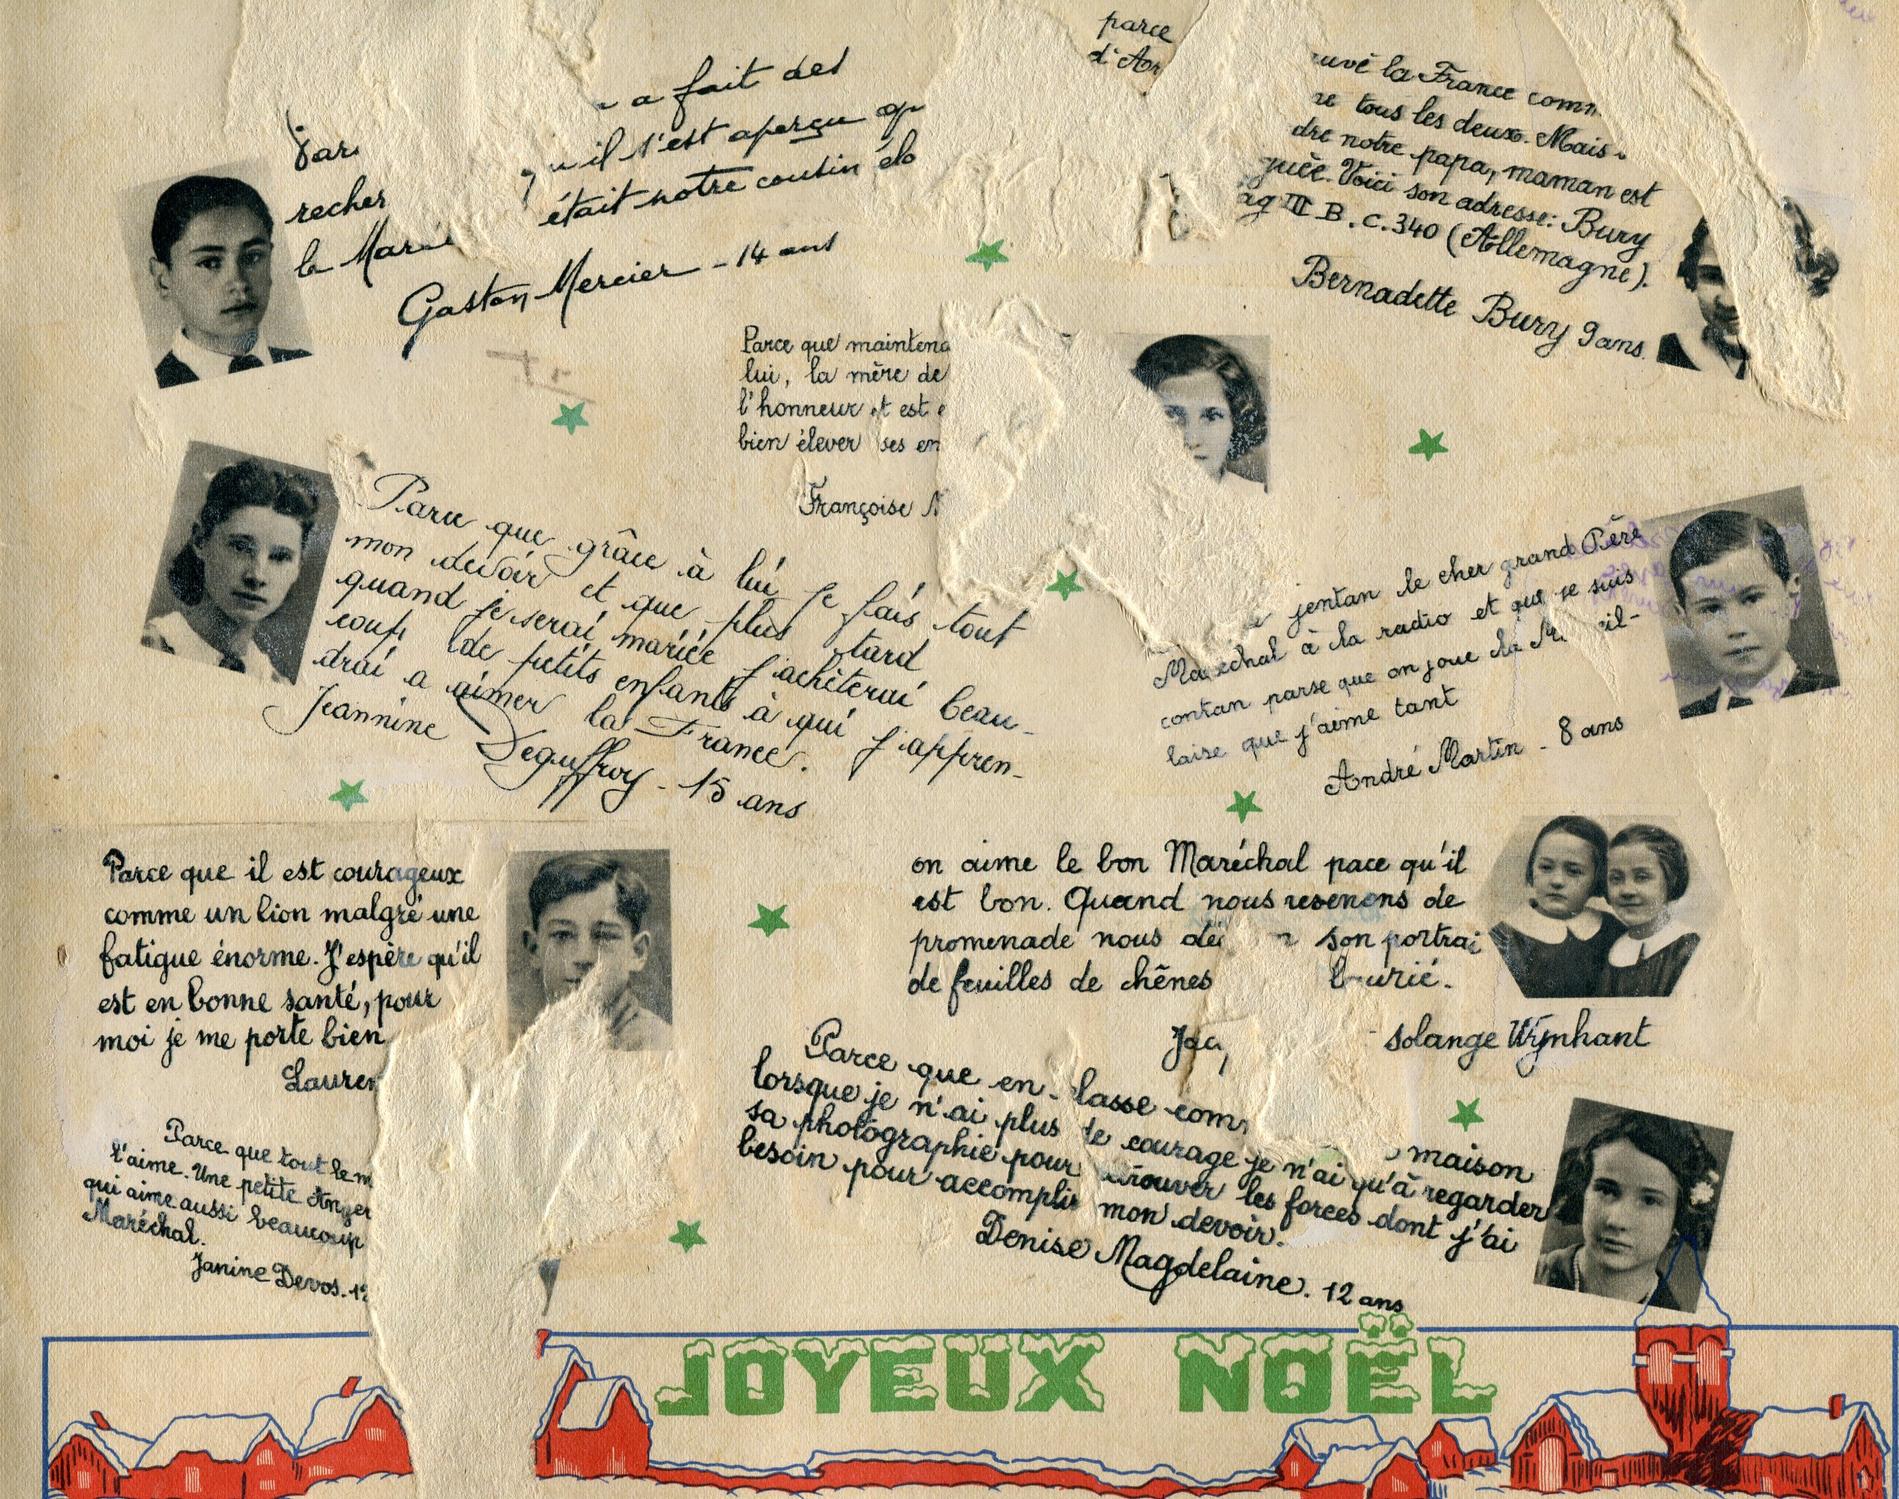 a fait des
qu'il s'est aperçu
recher
était notre cousin élo
le Maré
Gaston Mercier - 14 ans
parce
d'Ar
uvé la France comm
re tous les deux. Mais
dre notre papa, maman est
guée. Voici son adresse: Bury
ag III B. C. 340 (Allemagne).
Bernadette Bury 9 ans.
Parce que maintena
lui, la mère de
l'honneur et est e
bien élever ses en
Françoise
Parce que grâce à lui je fais tout
mon devoir et que plus tard
quand je serai mariée j'achèterai beau-
coup de petits enfants à qui j'appren-
drai a aimer la France.
Jeannine Deguffroy - 15 ans
jentan le cher grand Père
Maréchal à la radio et que je suis
contan parse que on joue la M il-
laise que j'aime tant
André Martin - 8 ans
Parce que il est courageux
comme un lion malgré une
fatigue énorme. J'espère qu'il
est en bonne santé, pour
moi je me porte bien
Lauren
on aime le bon Maréchal pace qu'il
est bon. Quand nous revenons de
promenade nous dé son portrai
de feuilles de chênes
Jacq Solange Wynhant
Parce que tout le m
l'aime. Une petite Anger
qui aime aussi beaucoup
Maréchal.
Janine Devos. 12
Parce que en classe com maison
lorsque je n'ai plus de courage je n'ai qu'à regarder
sa photographie pour trouver les forces dont j'ai
besoin pour accomplir mon devoir.
Denise Magdelaine. 12 ans
JOYEUX NOËL